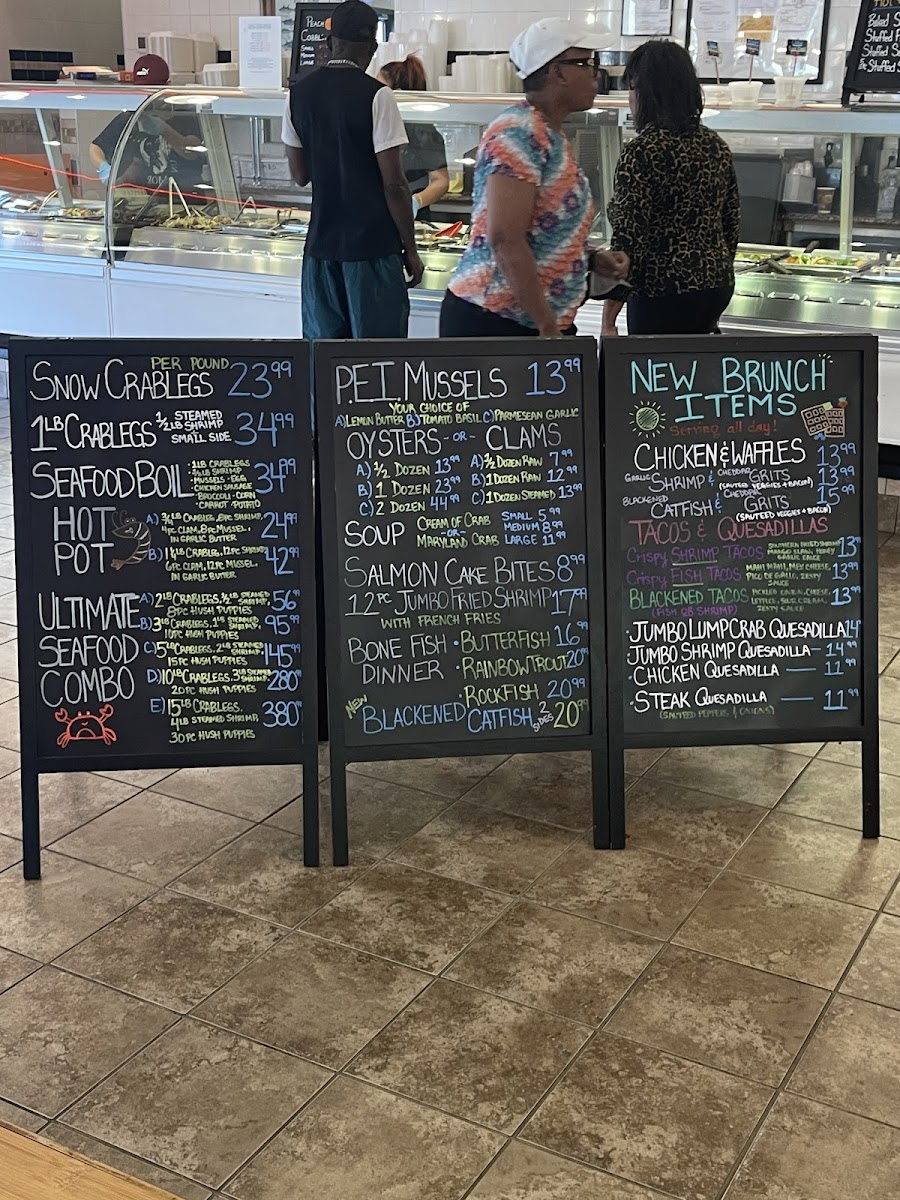 PEACH
COBBL
SMALL
MEDIUM
LARGE
HOT
Baked S
Stuffed
Stuffed S
Stuffed S
PER POUND
SNOW CRABLEGS 23⁹⁹
1LB CRABLEGS 1/2 LB STEAMED SHRIMP SMALL SIDE 34⁹⁹
SEAFOOD BOIL 34⁹⁹
· 1LB CRABLEGS
· 1/2LB SHRIMP
· MUSSELS · EGG
· CHICKEN SAUSAGE
· BROCCOLI · CORN
· CARROT · POTATO
HOT POT
A) 3/4LB CRABLEG, 8PC SHRIMP, 4PC CLAM, 8PC MUSSEL, IN GARLIC BUTTER 24⁹⁹
B) 1 1/4LB CRABLEG, 12PC SHRIMP, 6PC CLAM, 12PC MUSSEL, IN GARLIC BUTTER 42⁹⁹
ULTIMATE SEAFOOD COMBO
A) 2LB CRABLEGS, 1/2LB STEAMED SHRIMP, 8PC HUSH PUPPIES 56⁹⁹
B) 3LB CRABLEGS, 1LB STEAMED SHRIMP, 10PC HUSH PUPPIES 95⁹⁹
C) 5LB CRABLEGS, 2LB STEAMED SHRIMP, 15PC HUSH PUPPIES 145⁹⁹
D) 10LB CRABLEGS, 3LB STEAMED SHRIMP, 20PC HUSH PUPPIES 280
E) 15LB CRABLEGS, 4LB STEAMED SHRIMP, 30PC HUSH PUPPIES 380
P.E.I MUSSELS 13⁹⁹
YOUR CHOICE OF
A) LEMON BUTTER B) TOMATO BASIL C) PARMESEAN GARLIC
OYSTERS - OR - CLAMS
A) 1/2 DOZEN 13⁹⁹ A) 1/2 DOZEN RAW 7⁹⁹
B) 1 DOZEN 23⁹⁹ B) 1 DOZEN RAW 12⁹⁹
C) 2 DOZEN 44⁹⁹ C) 1 DOZEN STEAMED 13⁹⁹
SOUP CREAM OF CRAB -OR- MARYLAND CRAB
SMALL 5.99
MEDIUM 8.99
LARGE 11.99
SALMON CAKE BITES 8⁹⁹
12PC JUMBO FRIED SHRIMP 17⁹⁹
WITH FRENCH FRIES
BONE FISH DINNER
· BUTTERFISH 16⁹⁹
· RAINBOW TROUT 20⁹⁹
· ROCKFISH 20.99
NEW
BLACKENED CATFISH 2 SIDES 20⁹⁹
NEW BRUNCH
ITEMS
Serving all day!
CHICKEN & WAFFLES 13⁹⁹
GARLIC SHRIMP & CHEDDAR GRITS 13⁹⁹
(SAUTEED VEGGIES + BACON)
BLACKENED CATFISH & CHEDDAR GRITS 15⁹⁹
(SAUTEED VEGGIES + BACON)
TACOS & QUESADILLAS
Crispy SHRIMP TACOS SOUTHERN FRIED SHRIMP MANGO SLAW, HONEY GARLIC SAUCE 13
Crispy FISH TACOS MAHI MAHI, MEX CHEESE, PICO DE GALLO, ZESTY SAUCE 13⁹⁹
BLACKENED TACOS PICKLED ONION, CHEESE, LETTUCE, SOUR CREAM, ZESTY SAUCE 13⁹⁹
(FISH OR SHRIMP)
· JUMBO LUMP CRAB QUESADILLA 14
· JUMBO SHRIMP QUESADILLA — 14⁹⁹
· CHICKEN QUESADILLA — 11⁹⁹
· STEAK QUESADILLA — 11⁹⁹
(SAUTEED PEPPERS & ONIONS)